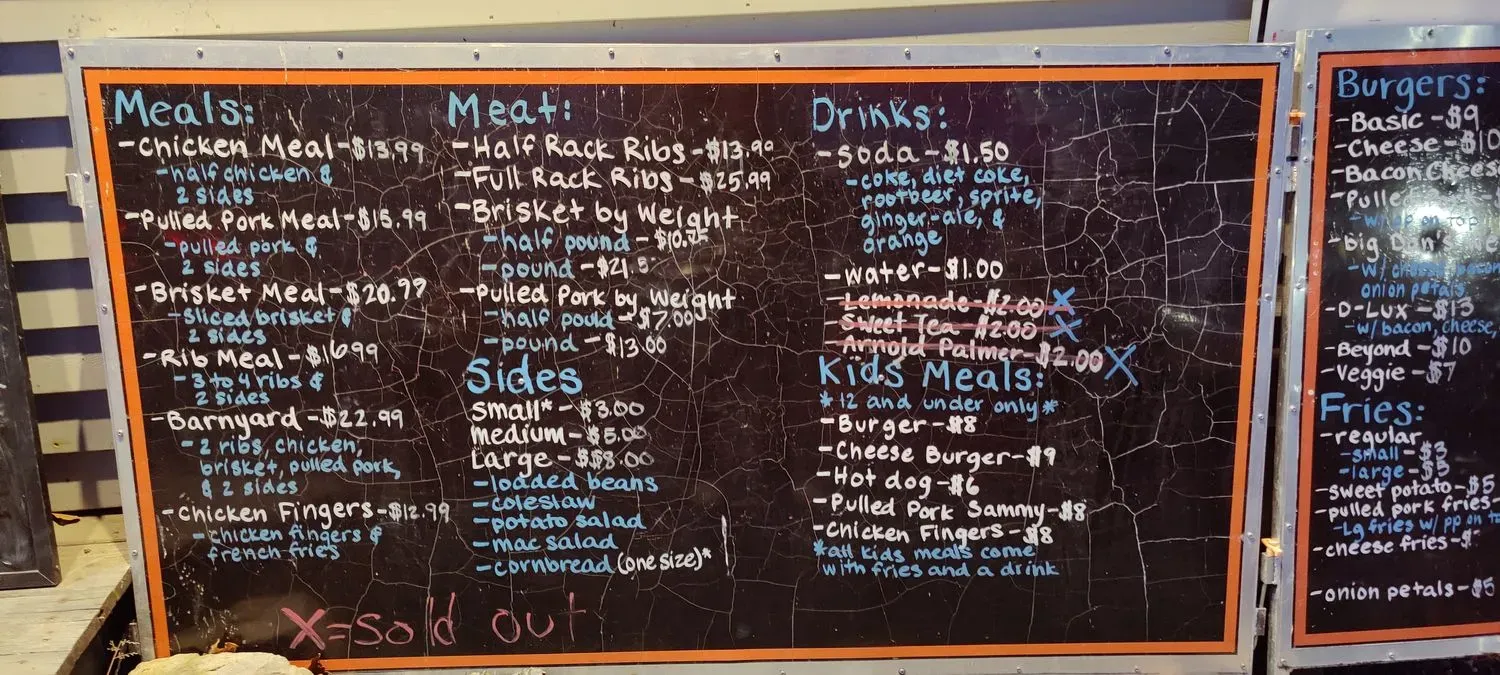 Meals:
-Chicken Meal-$13.99
-half chicken &
2 sides
-Pulled Pork Meal-$15.99
-pulled pork &
2 sides
-Brisket Meal-$20.99
-sliced brisket &
2 sides
-Rib Meal-$16.99
-3 to 4 ribs &
2 sides
-Barnyard-$22.99
-2 ribs, chicken,
brisket, pulled pork,
& 2 sides
-Chicken Fingers-$12.99
-chicken fingers &
french fries
Meat:
-Half Rack Ribs-$13.99
-Full Rack Ribs-$25.99
-Brisket by Weight
-half pound-
-pound-
-Pulled Pork by Weight
-half pould-$7.00
-pound-$13.00
Sides
small*-$3.00
medium-$5.00
Large-$$8.00
-loaded beans
-coleslaw
-potato salad
-mac salad
-cornbread (one size)*
Drinks:
-soda-$1.50
-coke, diet coke,
rootbeer, sprite,
ginger-ale, &
orange
-water-$1.00
-Lemonade-$2.00 X
-Sweet Tea-$2.00 X
-Arnold Palmer-$2.00 X
Kids Meals:
*12 and under only*
-Burger-$8
-Cheese Burger-$9
-Hot dog-$6
-Pulled Pork Sammy-$8
-Chicken Fingers-$8
*all kids meals come
with fries and a drink
X=sold out
Burgers:
-Basic-$9
-Cheese-$10
-Bacon Cheese
-Pulled
-w/ pp on top
-big Don's
-w/ cheese, bacon
onion petals
-D-Lux-$13
-w/bacon, cheese,
-Beyond-$10
-Veggie-$7
Fries:
-regular
-small-$3
-large-$5
-sweet potato-$5
-pulled pork fries-
-Lg fries w/ pp on
-cheese fries-$
-onion petals-$5